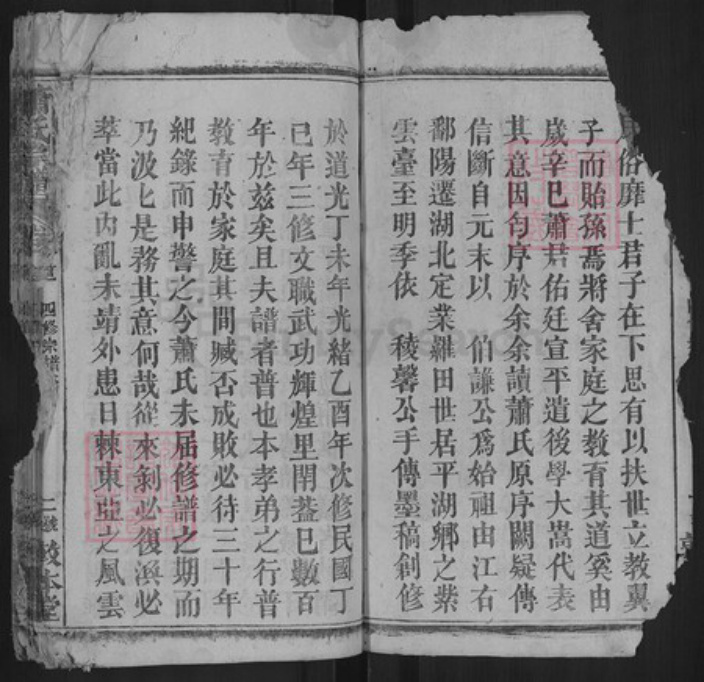 俗靡士君子在下思有以扶世立教翼
子而貽孫焉將舍家庭之教育其道奚由
歲辛巳蕭君佑廷宣平遣後學大嵩代表
其意因勻序於余余讀蕭氏原序闕疑傳
信斷自元末以 伯謙公爲始祖由江右
鄱陽遷湖北定業羅田世居平湖鄉之紫
雲臺至明季依 稜馨公手傳墨稿創修
於道光丁未年光緒乙酉年次修民國丁
巳年三修文職武功輝煌里閈蓋已數百
年於茲矣且夫譜者普也本孝弟之行普
教育於家庭其間臧否成敗必待三十年
紀錄而申警之今蕭氏未屆修譜之期而
乃汲匕是務其意何哉從來剝必復渙必
萃當此內亂未靖外患日棘東亞之風雲
氏宗譜
四修宗譜
二號
敦本堂